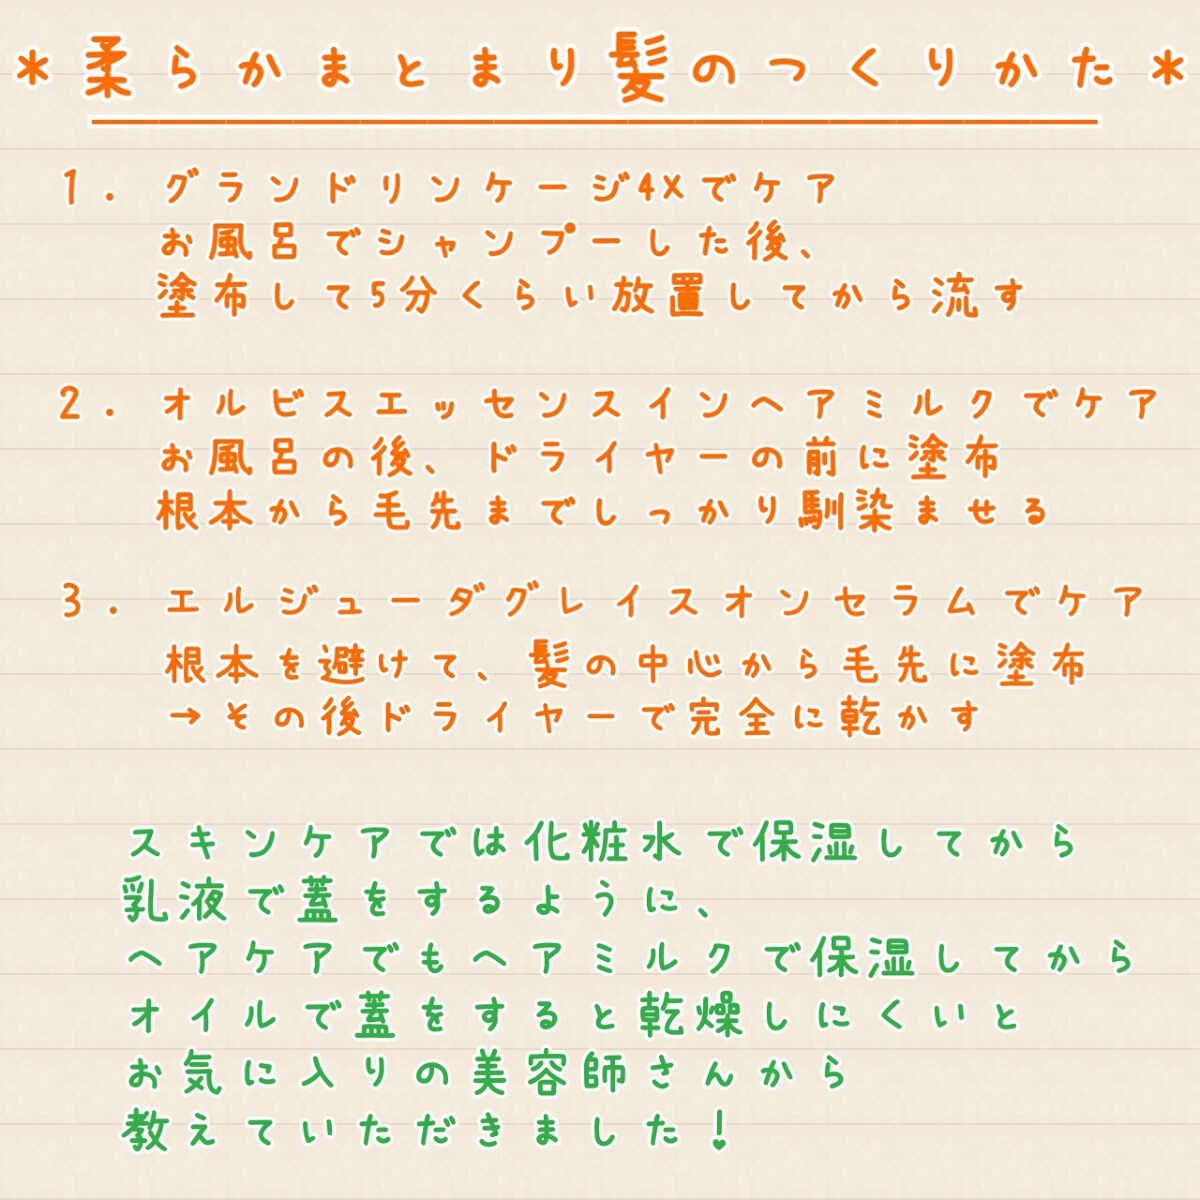 *柔らかまとまり髪のつくりかた*
1. グランドリンケージ4Xでケア
お風呂でシャンプーした後、
塗布して5分くらい放置してから流す
2. オルビスエッセンスインヘアミルクでケア
お風呂の後、ドライヤーの前に塗布
根本から毛先までしっかり馴染ませる
3. エルジューダグレイスオンセラムでケア
根本を避けて、髪の中心から毛先に塗布
→その後ドライヤーで完全に乾かす
スキンケアでは化粧水で保湿してから
乳液で蓋をするように、
ヘアケアでもヘアミルクで保湿してから
オイルで蓋をすると乾燥しにくいと
お気に入りの美容師さんから
教えていただきました!